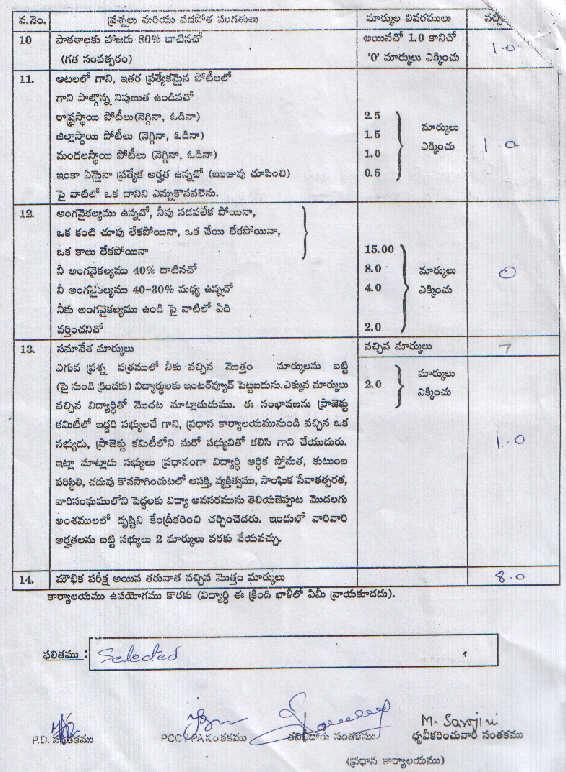 వ.నెం. ప్రశ్నలు మరియు చేవపోత వంగతులు మార్కుల వివరములు
10 పాఠశాలకు హాజరు 80% దాటినచో అయినచో 1.0 కానిచో 1.0
(గత సంవత్సరం) '0' మార్కులు ఎక్కించు
11. ఆటలలో గాని, ఇతర ప్రత్యేకమైన పోటీలలో
గాని పాల్గొన్న నిపుణత ఉండినచో
రాష్ట్రస్థాయి పోటీలు(నెగ్గినా, ఓడినా) 2.5
జిల్లాస్థాయి పోటీలు (నెగ్గినా, ఓడినా) 1.5 మార్కులు
మండలస్థాయి పోటీలు (నెగ్గినా, ఓడినా) 1.0 ఎక్కించు
ఇంకా ఏదైనా ప్రత్యేక అర్హత ఉన్నచో (ఋజువు చూపించి) 0.5
పై వాటిలో ఒక దానిని ఎన్నుకొనవలెను.
12. అంగవైకల్యము ఉన్నచో, నీవు నడవలేక పోయినా,
ఒక కంటి చూపు లేకపోయినా, ఒక చేయి లేకపోయినా,
ఒక కాలు లేకపోయినా 15.00
నీ అంగవైకల్యము 40% దాటినచో 8.0 మార్కులు 0
నీ అంగవైకల్యము 40-30% మధ్య ఉన్నచో 4.0 ఎక్కించు
నీకు అంగవైకల్యము ఉండి పై వాటిలో ఏది
వర్తించనిచో 2.0
13. సమానేత మార్కులు వచ్చిన మార్కులు 7
ఎగువ ప్రశ్న పత్రములో నీకు వచ్చిన మొత్తం మార్కులను బట్టి మార్కులు
(పై నుండి క్రిందకు) విద్యార్థులకు ఇంటర్వ్యూకి పెట్టబడును.ఎక్కువ మార్కులు 2.0 ఎక్కించు
వచ్చిన విద్యార్థితో మొదట మాట్లాడుదుము. ఈ సంభాషణను ప్రాజెక్టు
కమిటీలో ఇద్దరి సభ్యులచే గాని, ప్రధాన కార్యాలయమునుండి వచ్చిన ఒక
సభ్యుడు, ప్రాజెక్టు కమిటీలోని మరో సభ్యునితో కలిసి గాని చేయుదురు. 1.0
ఇట్లా మాట్లాడు సభ్యులు ప్రధానంగా విద్యార్థి ఆర్థిక స్తోమత, కుటుంబ
పరిస్థితి, చదువు కొనసాగించుటలో ఆసక్తి, వ్యక్తిత్వము, సాంఘిక సేవాతత్పరత,
వారిసంఘములోని పెద్దలకు విద్యా అవసరమును తెలియజెప్పుట మొదలగు
అంశములలో దృష్టిని కేంద్రీకరించి చర్చించెదరు. ఇందులో వారివారి
అర్హతలను బట్టి సభ్యులు 2 మార్కులు వరకు వేయవచ్చు.
14. మౌఖిక పరీక్ష అయిన తరువాత వచ్చిన మొత్తం మార్కులు 8.0
కార్యాలయము ఉపయోగము కొరకు (విద్యార్థి ఈ క్రింది ఖాళీలో ఏమీ వ్రాయకూడదు).
ఫలితము : Selected
M. Sarojini
P.D. సంతకము సంతకము సంతకము ధృవీకరించువారి సంతకము
(ప్రధాన కార్యాలయము)